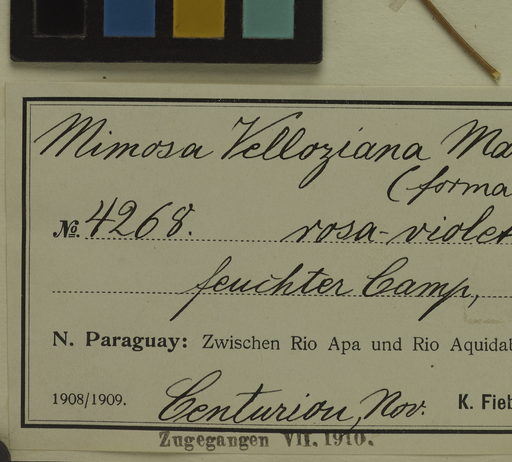 Mimosa Velloziana Ma
(forma
No. 4268. rosa-violet
feuchter Camp,
N. Paraguay: Zwischen Rio Apa und Rio Aquidab
1908/1909. Centurion, Nov. K. Fieb
Zugegangen VII. 1910.